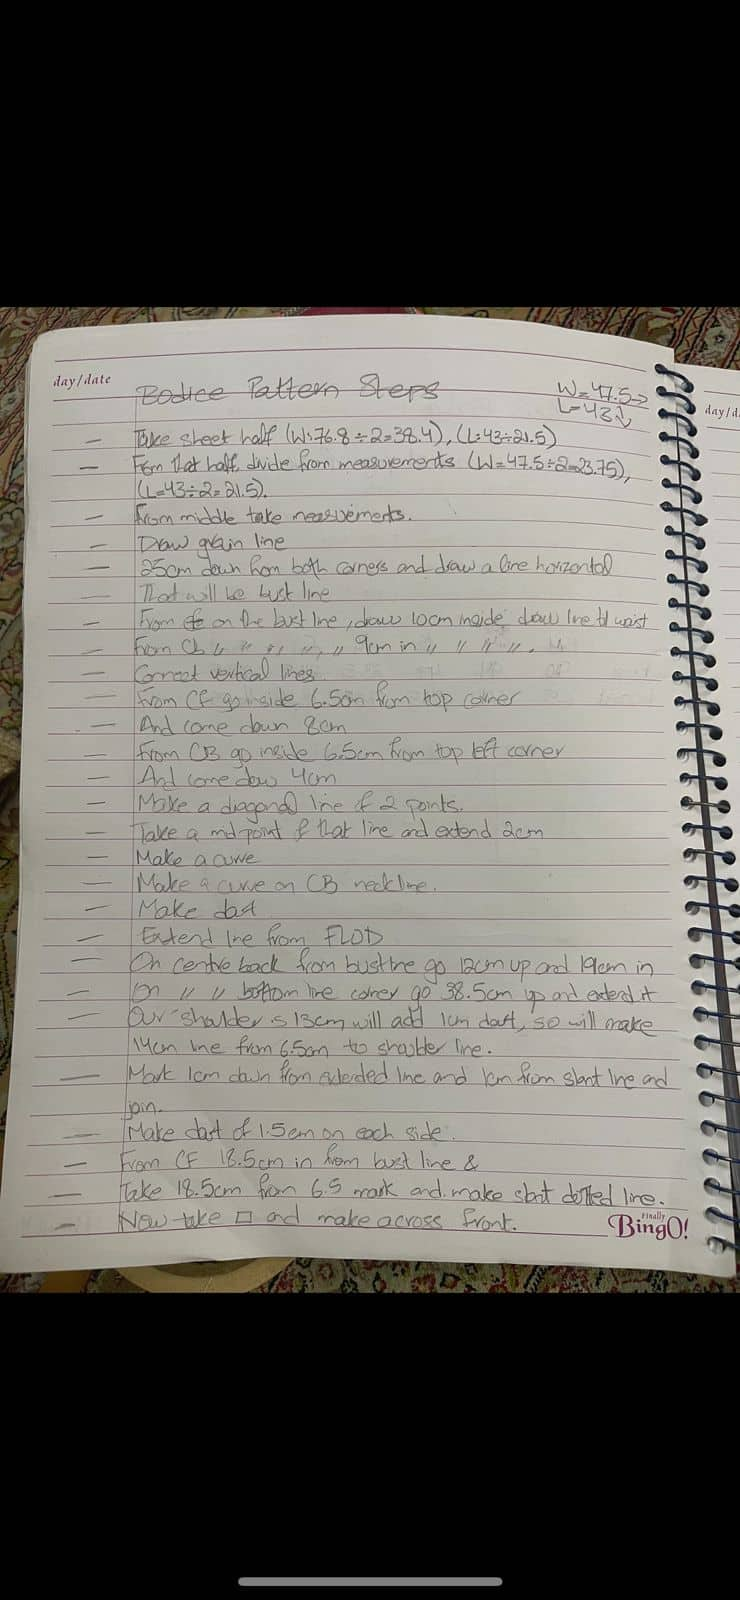 day/date
Bodice Pattern Steps
W=47.5→
L=43↓
day/d
— Take sheet half (W:76.8÷2=38.4), (L:43÷21.5)
— From that half, divide from measurements (W=47.5÷2=23.75),
(L=43÷2=21.5).
— From middle take measurements.
— Draw grain line
— 25cm down from both corners and draw a line horizontal
— That will be bust line
— From on the bust line, draw 10cm inside draw line til waist
— From CB 〃 〃 〃 〃, 〃 9cm in 〃 〃 〃 〃.
— Connect vertical lines
— From CF go inside 6.5cm from top corner
— And come down 8cm
— From CB go inside 6.5cm from top left corner
— And come dow 4cm
— Make a diagonal line of 2 points.
— Take a mid point of that line and extend 2cm
— Make a curve
— Make a curve on CB neckline.
— Make dart
— Extend line from FLOD
— On centre back from bustline go 12cm up and 19cm in
— On 〃 〃 bottom line corner go 38.5cm up and extend it
— Our shoulder is 13cm will add 1cm dart, so will make
14cm line from 6.5cm to shoulder line.
— Mark 1cm down from extended line and 1cm from slant line and
join.
— Make dart of 1.5cm on each side.
— From CF 18.5cm in from bust line &
— Take 18.5cm from 6.5 mark and make slant dotted line.
— Now take □ and make across front.
Finally
BingO!